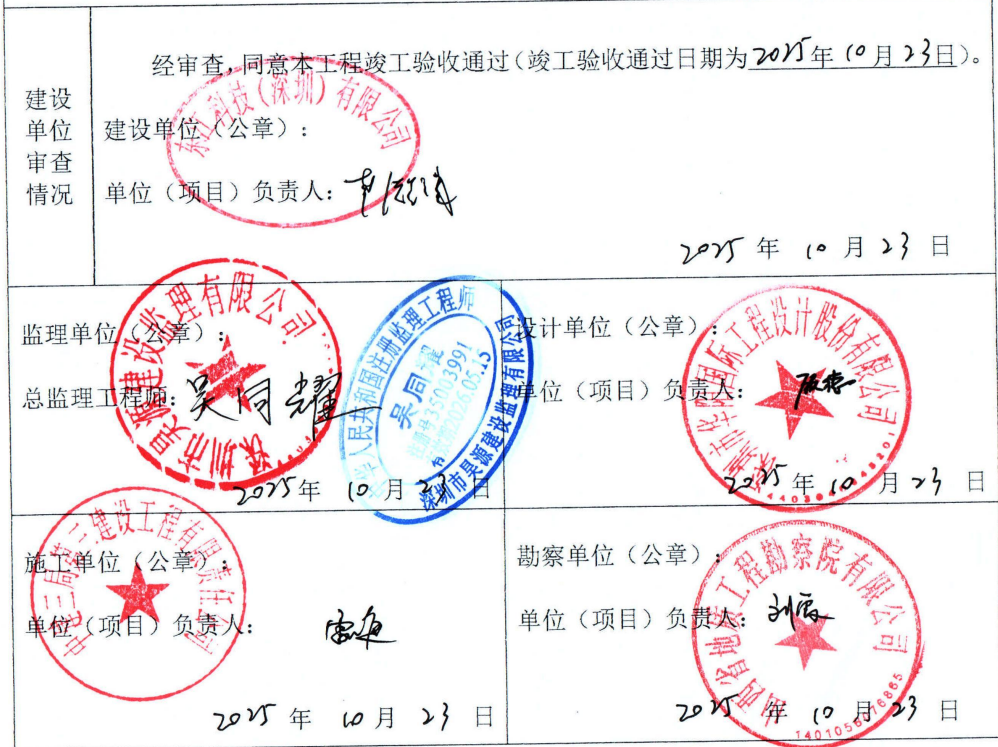 经审查,同意本工程竣工验收通过(竣工验收通过日期为2025年10月23日)。
建设
单位
审查
情况
建设单位(公章):
东江科技(深圳)有限公司
单位(项目)负责人:
2025 年 10 月 23 日
监理单位(公章):
深圳市昊源建设监理有限公司
总监理工程师:吴同耀
中华人民共和国注册监理工程师
吴同耀
注册号35003991
有效期2026.05.15
深圳市昊源建设监理有限公司
2025年 10 月 23 日
设计单位(公章):
深圳市华阳国际工程设计股份有限公司
单位(项目)负责人:
2025 年 10 月 23 日
施工单位(公章):
中建三局第三建设工程有限责任公司
单位(项目)负责人:
2025 年 10 月 23 日
勘察单位(公章):
山西省地质工程勘察院有限公司
单位(项目)负责人:刘霞
1401056076865
2025 年 10 月 23 日